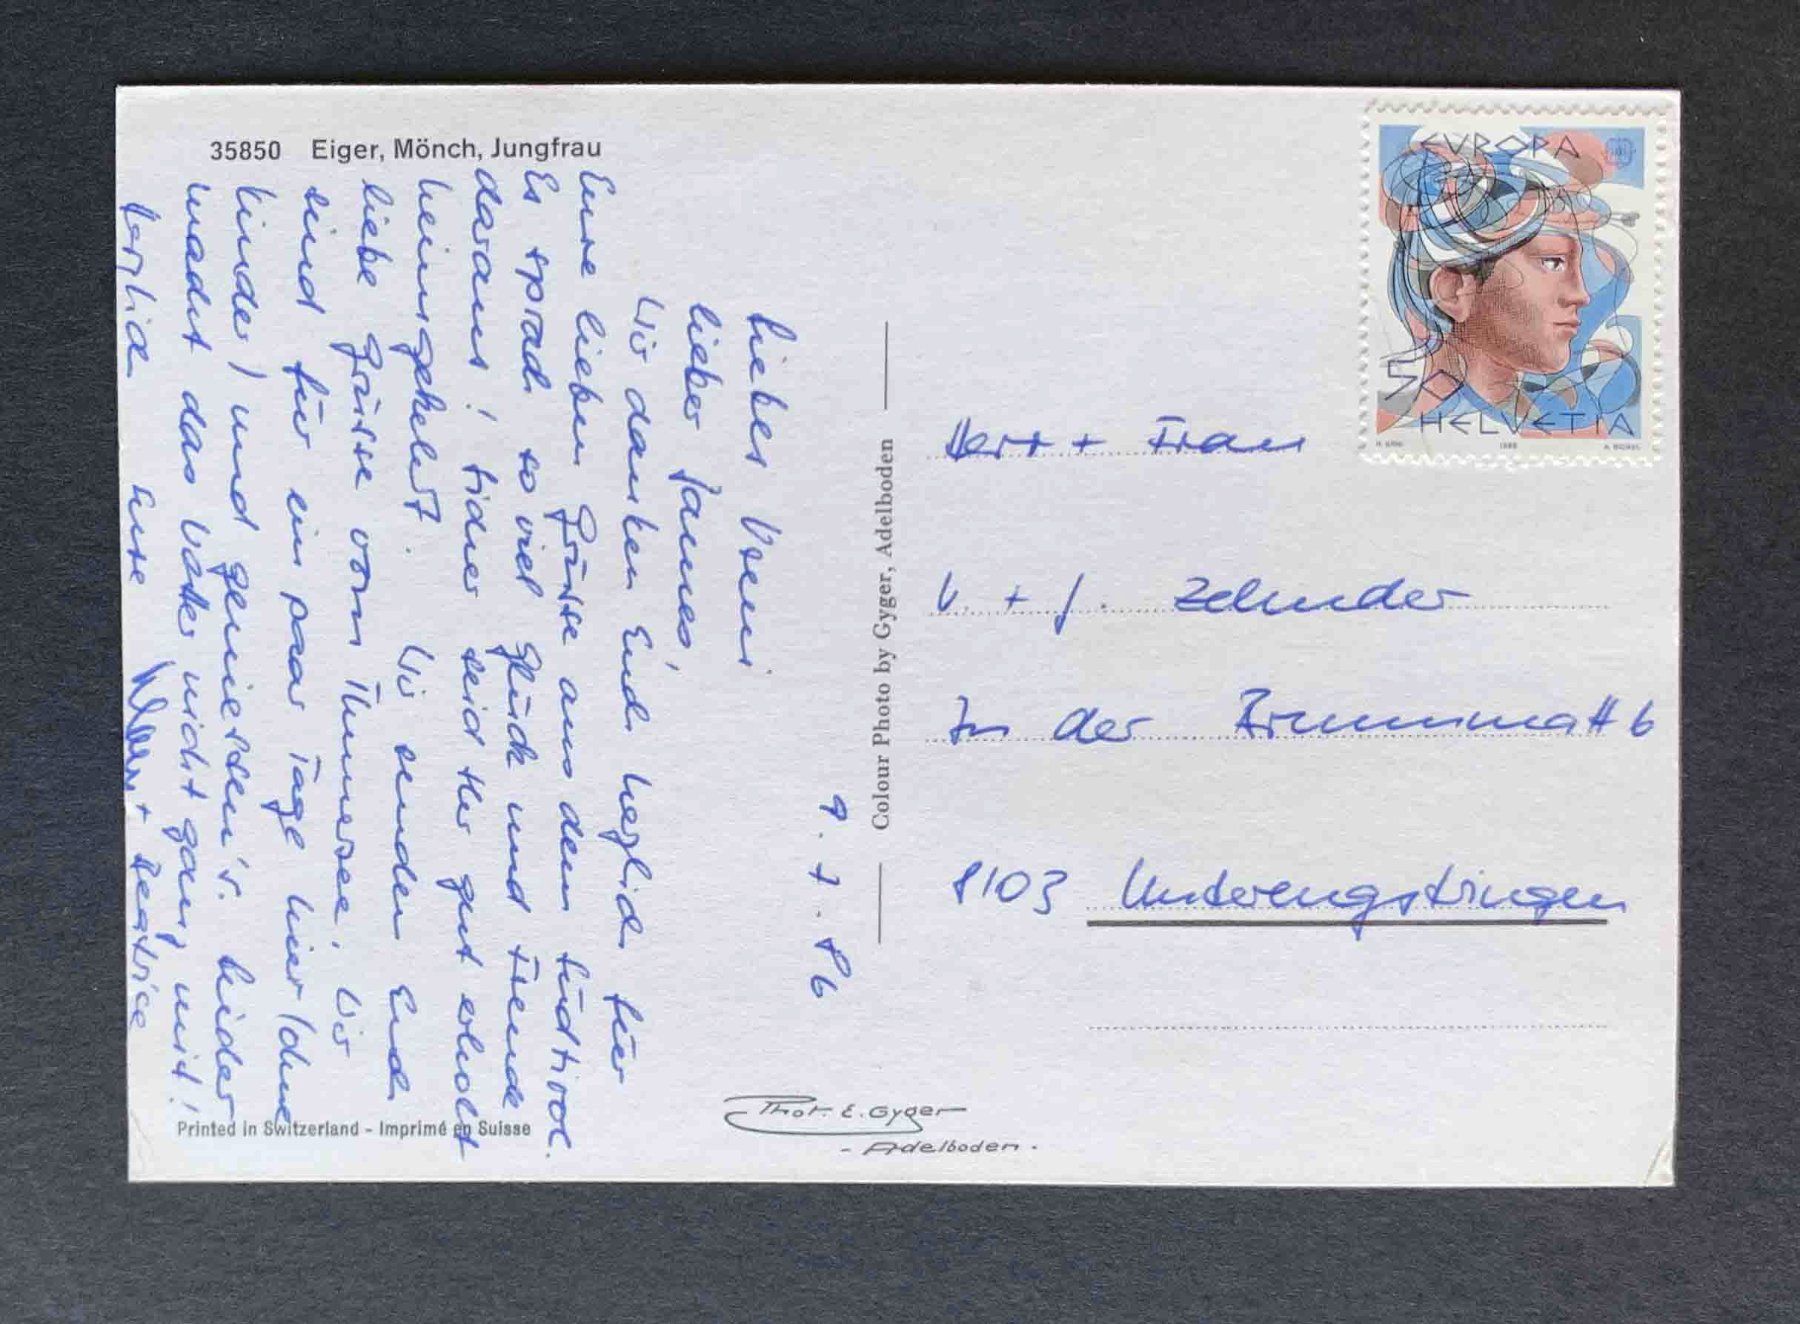 35850 Eiger, Mönch, Jungfrau
9. 7. 86
Liebes Vreni
lieber James,
Wir danken Euch herzlich für
Eure lieben Grüsse aus dem Südtirol.
Es sprach so viel Glück und Freude
daraus! Sicher seid Ihr gut erholt
heimgekehrt. Wir senden Euch
liebe Grüsse vom Thunersee. Wir
sind für ein paar Tage hier (ohne
Kinder) und geniessen's. Leider
macht das Wetter nicht ganz mit!
Herzlich Eure + Beatrice
Printed in Switzerland - Imprimé en Suisse
Colour Photo by Gyger, Adelboden
Phot. E. Gyger
- Adelboden -
EVROPA
50
HELVETIA
1986
Herr + Frau
V. + J. Zehnder
In der Brunnmatt 6
8103 Unterengstringen